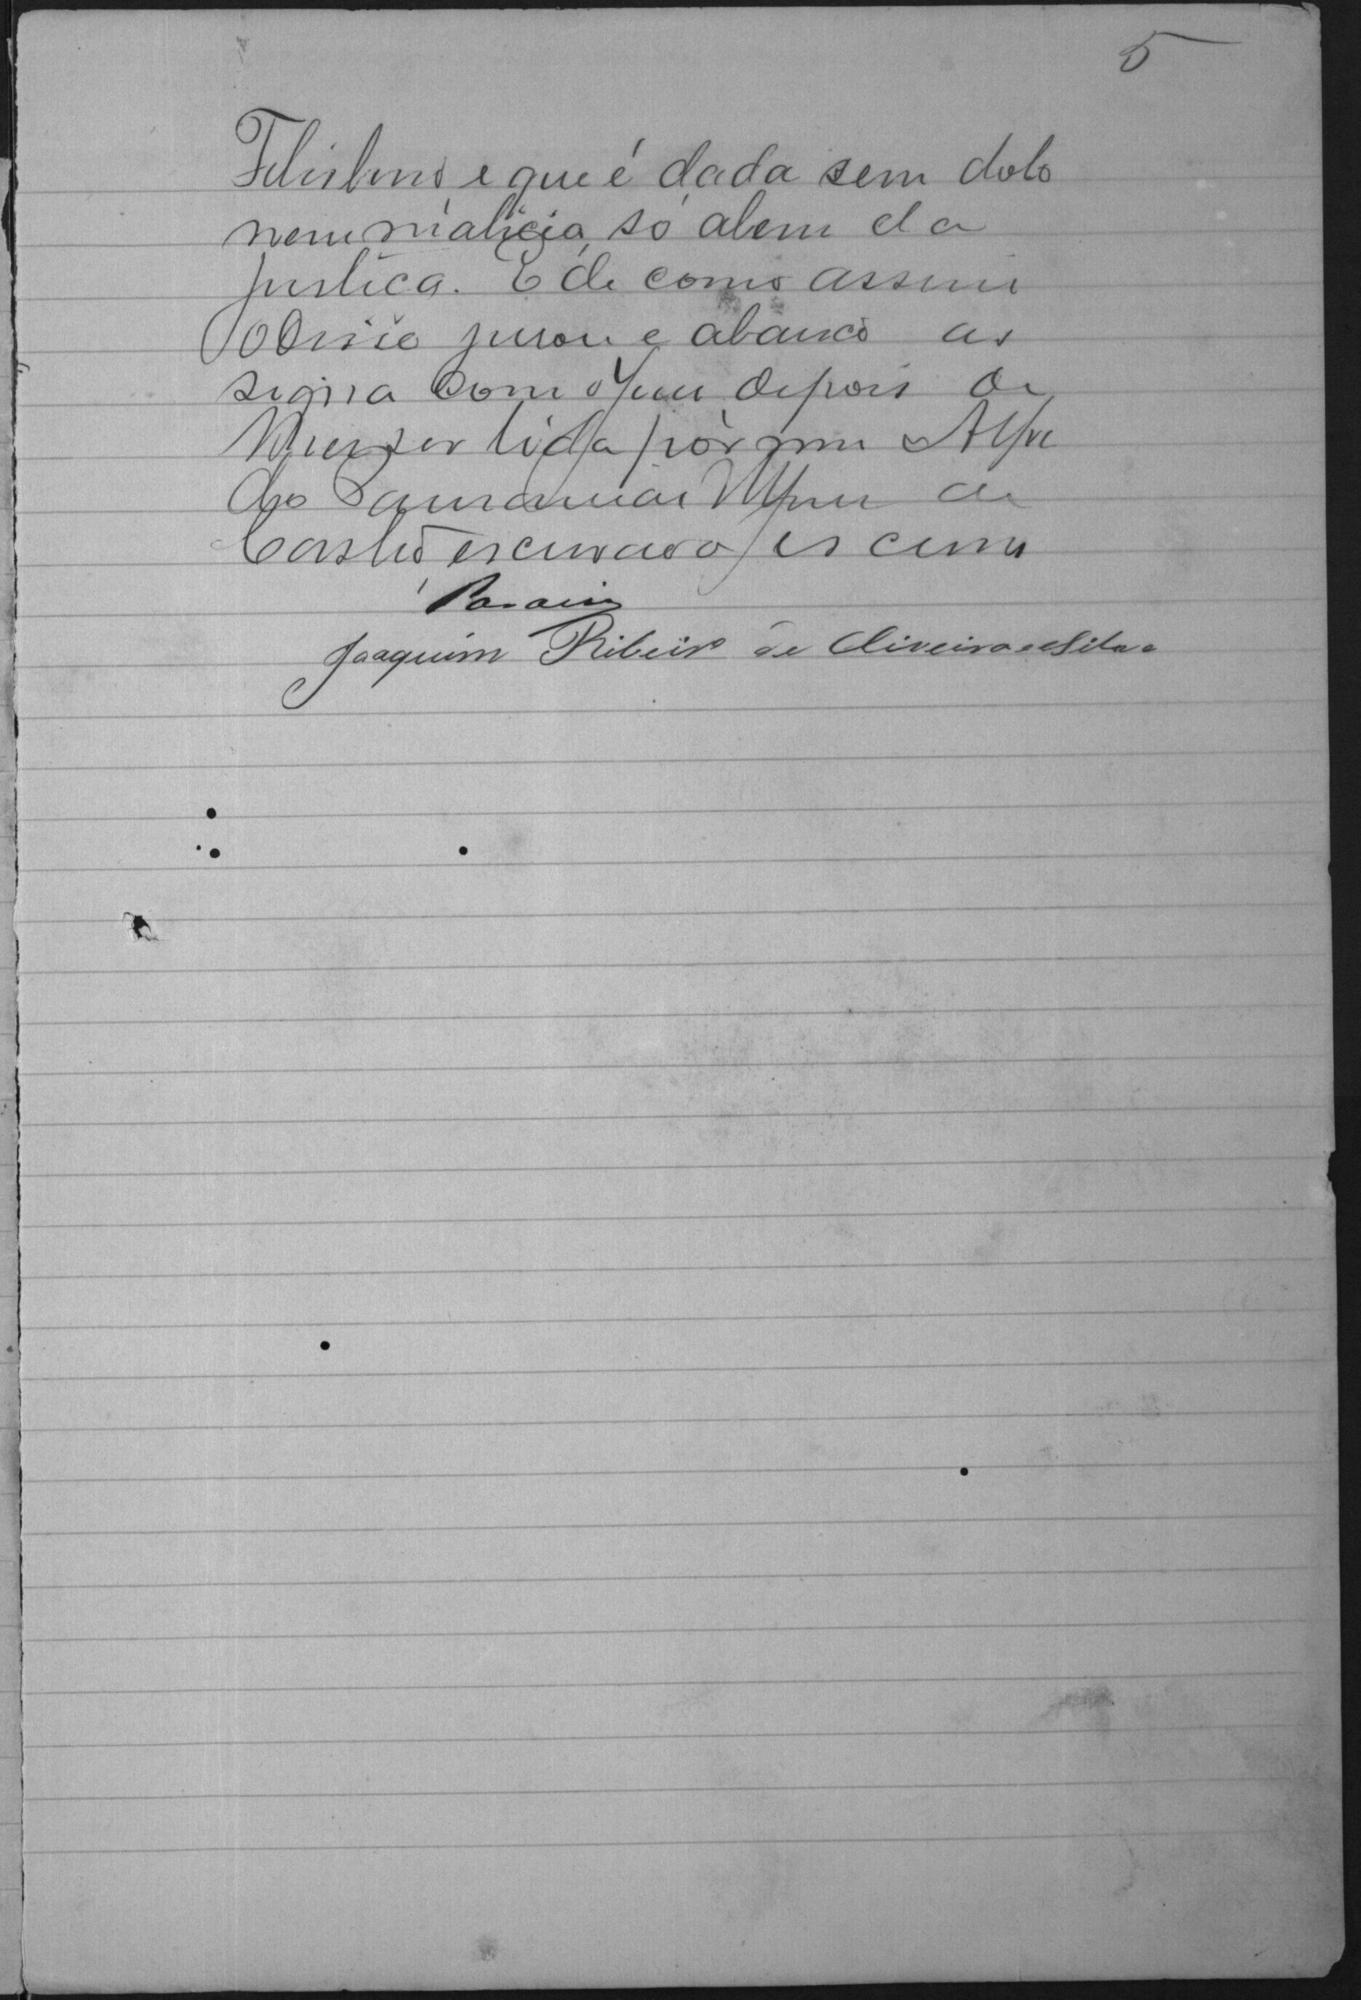 5
Felisbino e que é dada sem dolo
nem malicia, só alem da
justica. E de como assim
o disse jurou e abaixo as
signa com o Juiz depois de
lhe ser lida por mim Alfre
do
Castro escrivão o escrevi
Joaquim Ribeiro de Oliveira e Silva